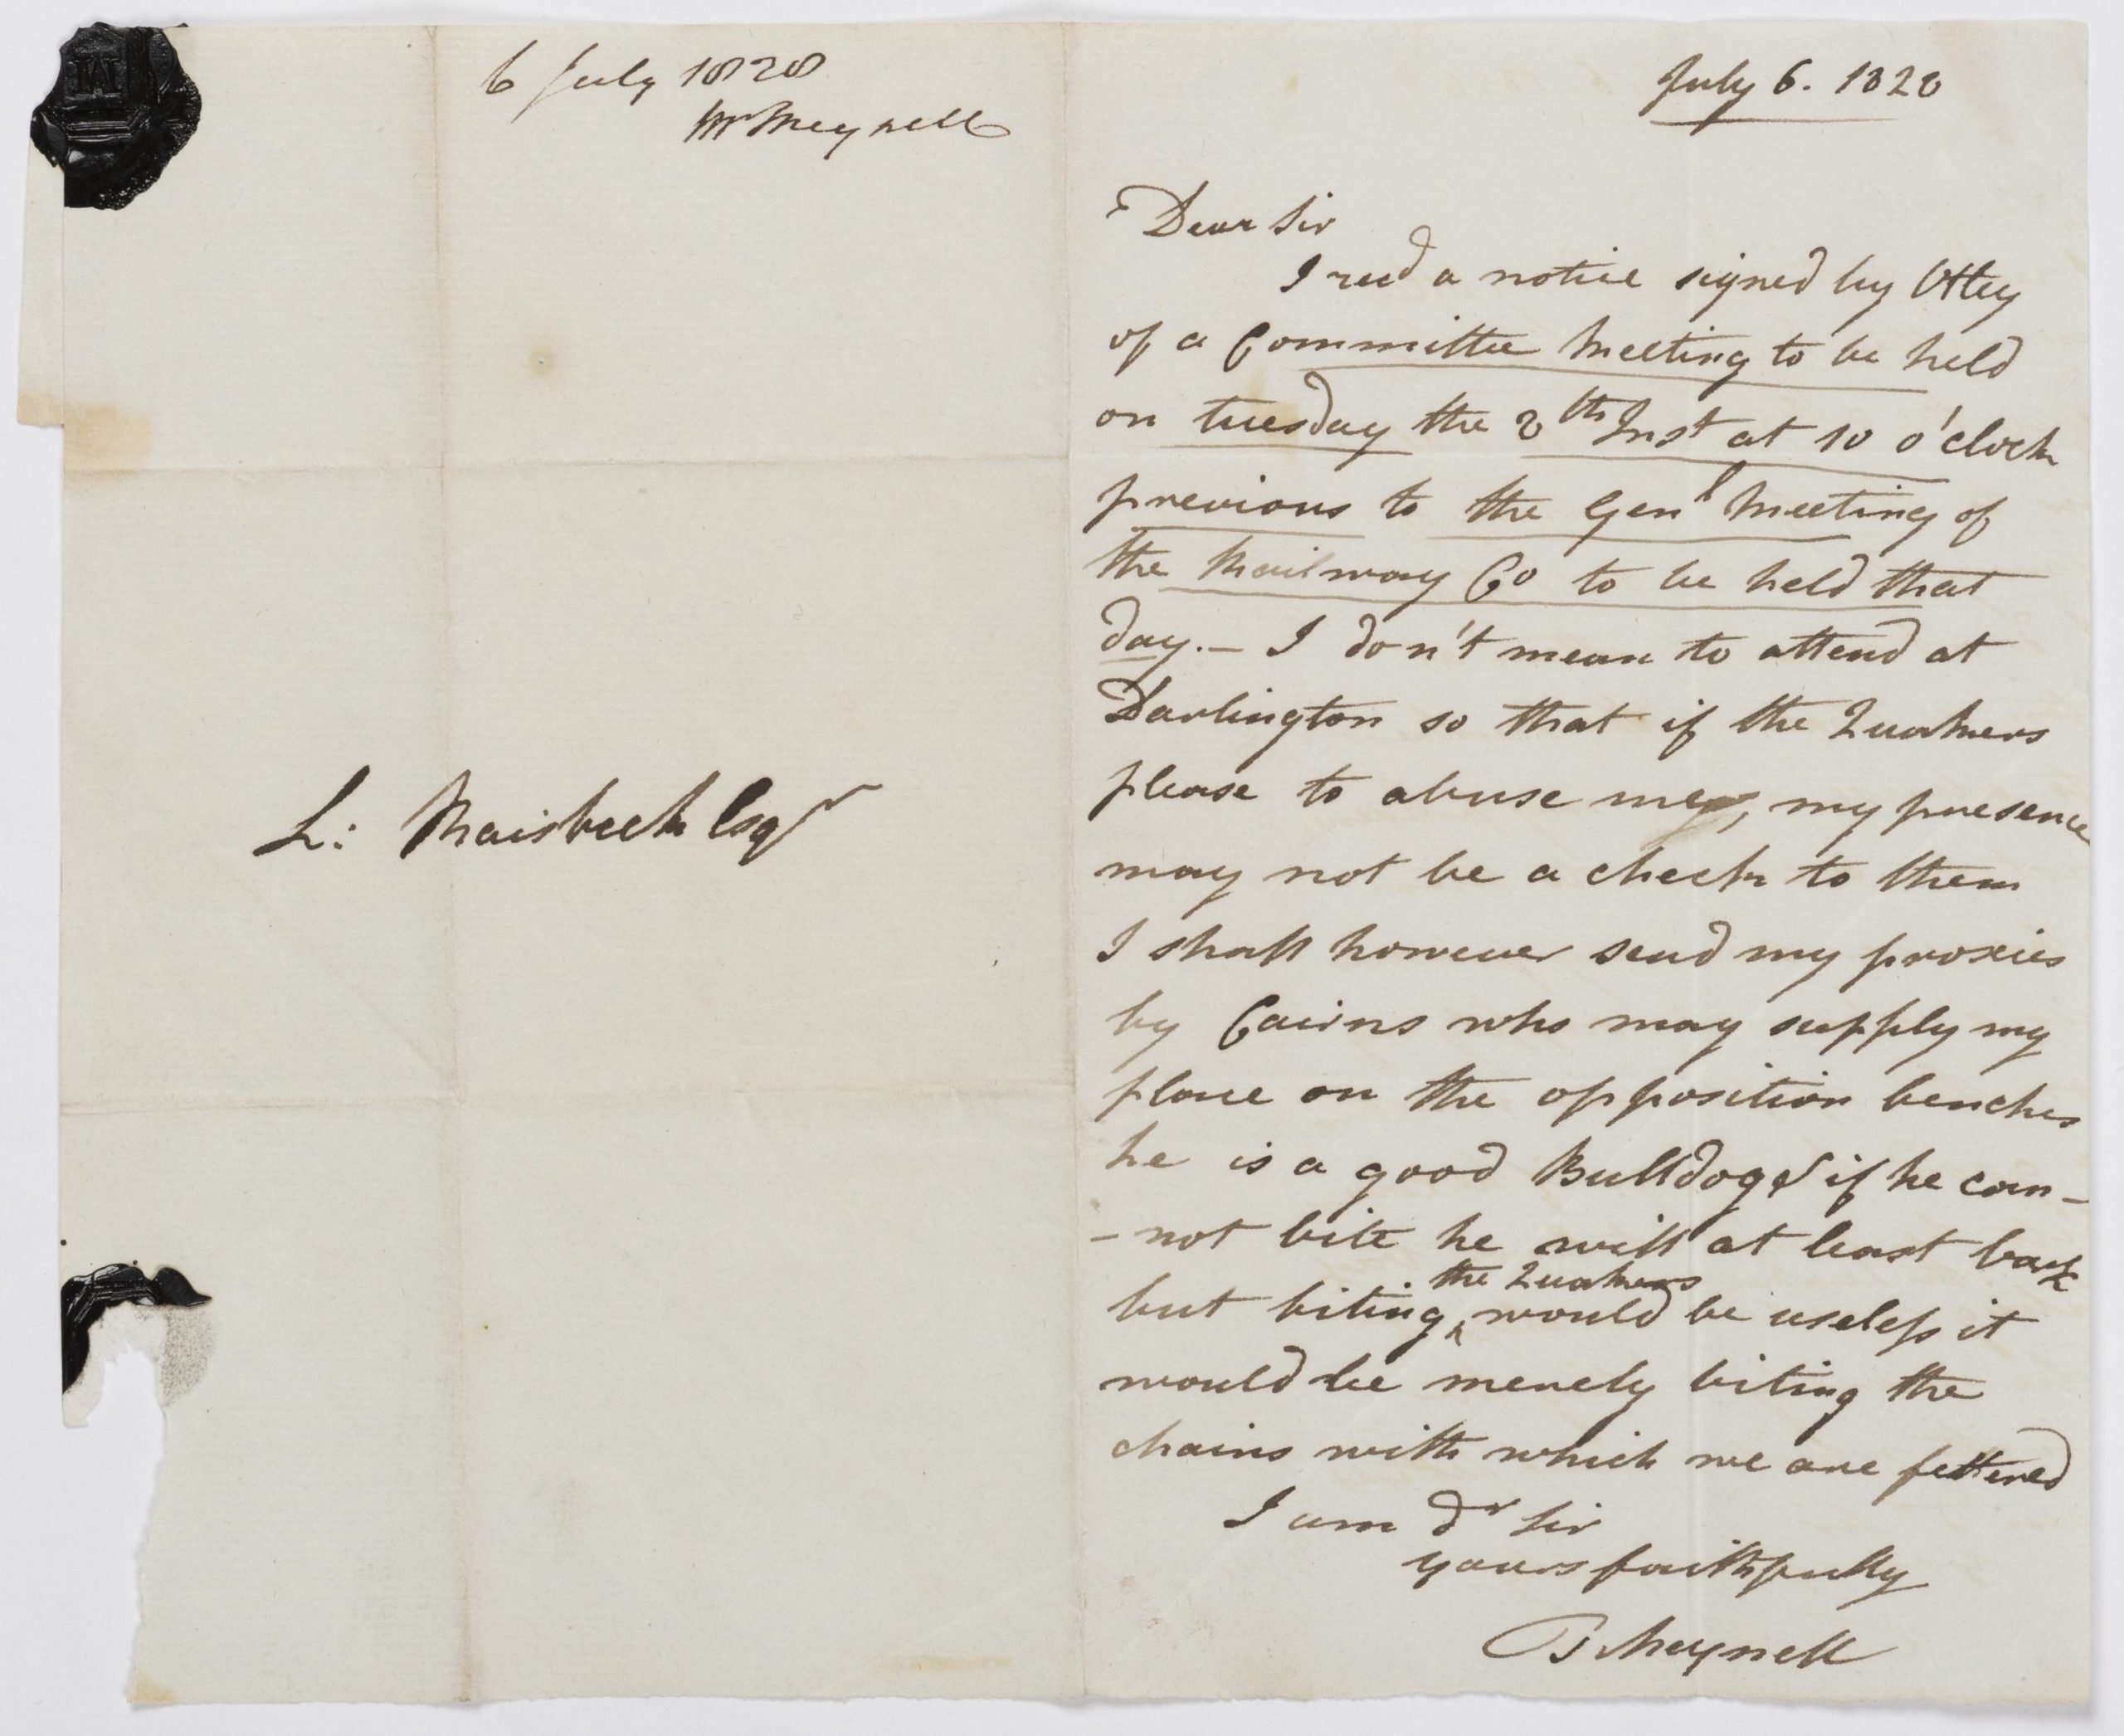 6 July 1828
Mr Meynell
L: Maisbeck Esqr
July 6. 1828
Dear Sir
I recd a notice signed by Otley
of a Committee Meeting to be held
on tuesday the 8th Inst at 10 o'clock
previous to the Genl Meeting of
the Railway Co to be held that
day. - I don't mean to attend at
Darlington so that if the Quakers
please to abuse me, my presence
may not be a check to them
I shall however send my proxies
by Cairns who may supply my
place on the opposition benches
he is a good Bulldog & if he can-
- not bite he will at least bark
but biting the Quakers would be useless it
would be merely biting the
chains with which we are fettered
I am dr Sir
yours faithfully
T Meynell